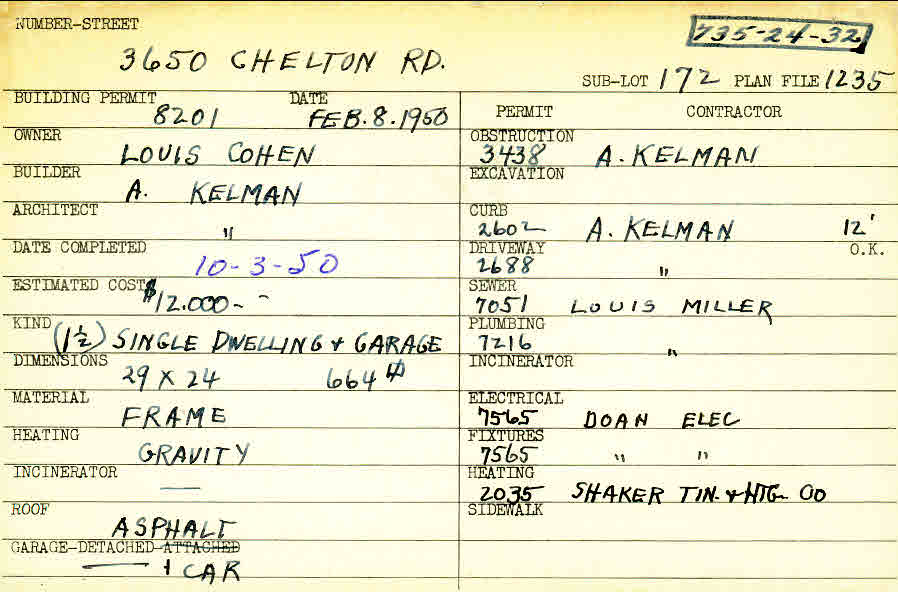 NUMBER-STREET
735-24-32
3650 CHELTON RD.
SUB-LOT 172 PLAN FILE 1235
BUILDING PERMIT DATE
8201 FEB. 8. 1950
OWNER
LOUIS COHEN
BUILDER
A. KELMAN
ARCHITECT
"
DATE COMPLETED
10-3-50
ESTIMATED COST
$12.000--
KIND
(1½) SINGLE DWELLING & GARAGE
DIMENSIONS
29 X 24 664 #
MATERIAL
FRAME
HEATING
GRAVITY
INCINERATOR
—
ROOF
ASPHALT
GARAGE-DETACHED-ATTACHED
1 CAR
PERMIT CONTRACTOR
OBSTRUCTION
3438 A. KELMAN
EXCAVATION
CURB
2602 A. KELMAN 12'
DRIVEWAY O.K.
2688 "
SEWER
7051 LOUIS MILLER
PLUMBING
7216 "
INCINERATOR
ELECTRICAL
7565 DOAN ELEC
FIXTURES
7565 " "
HEATING
2035 SHAKER TIN. & HTG. CO
SIDEWALK